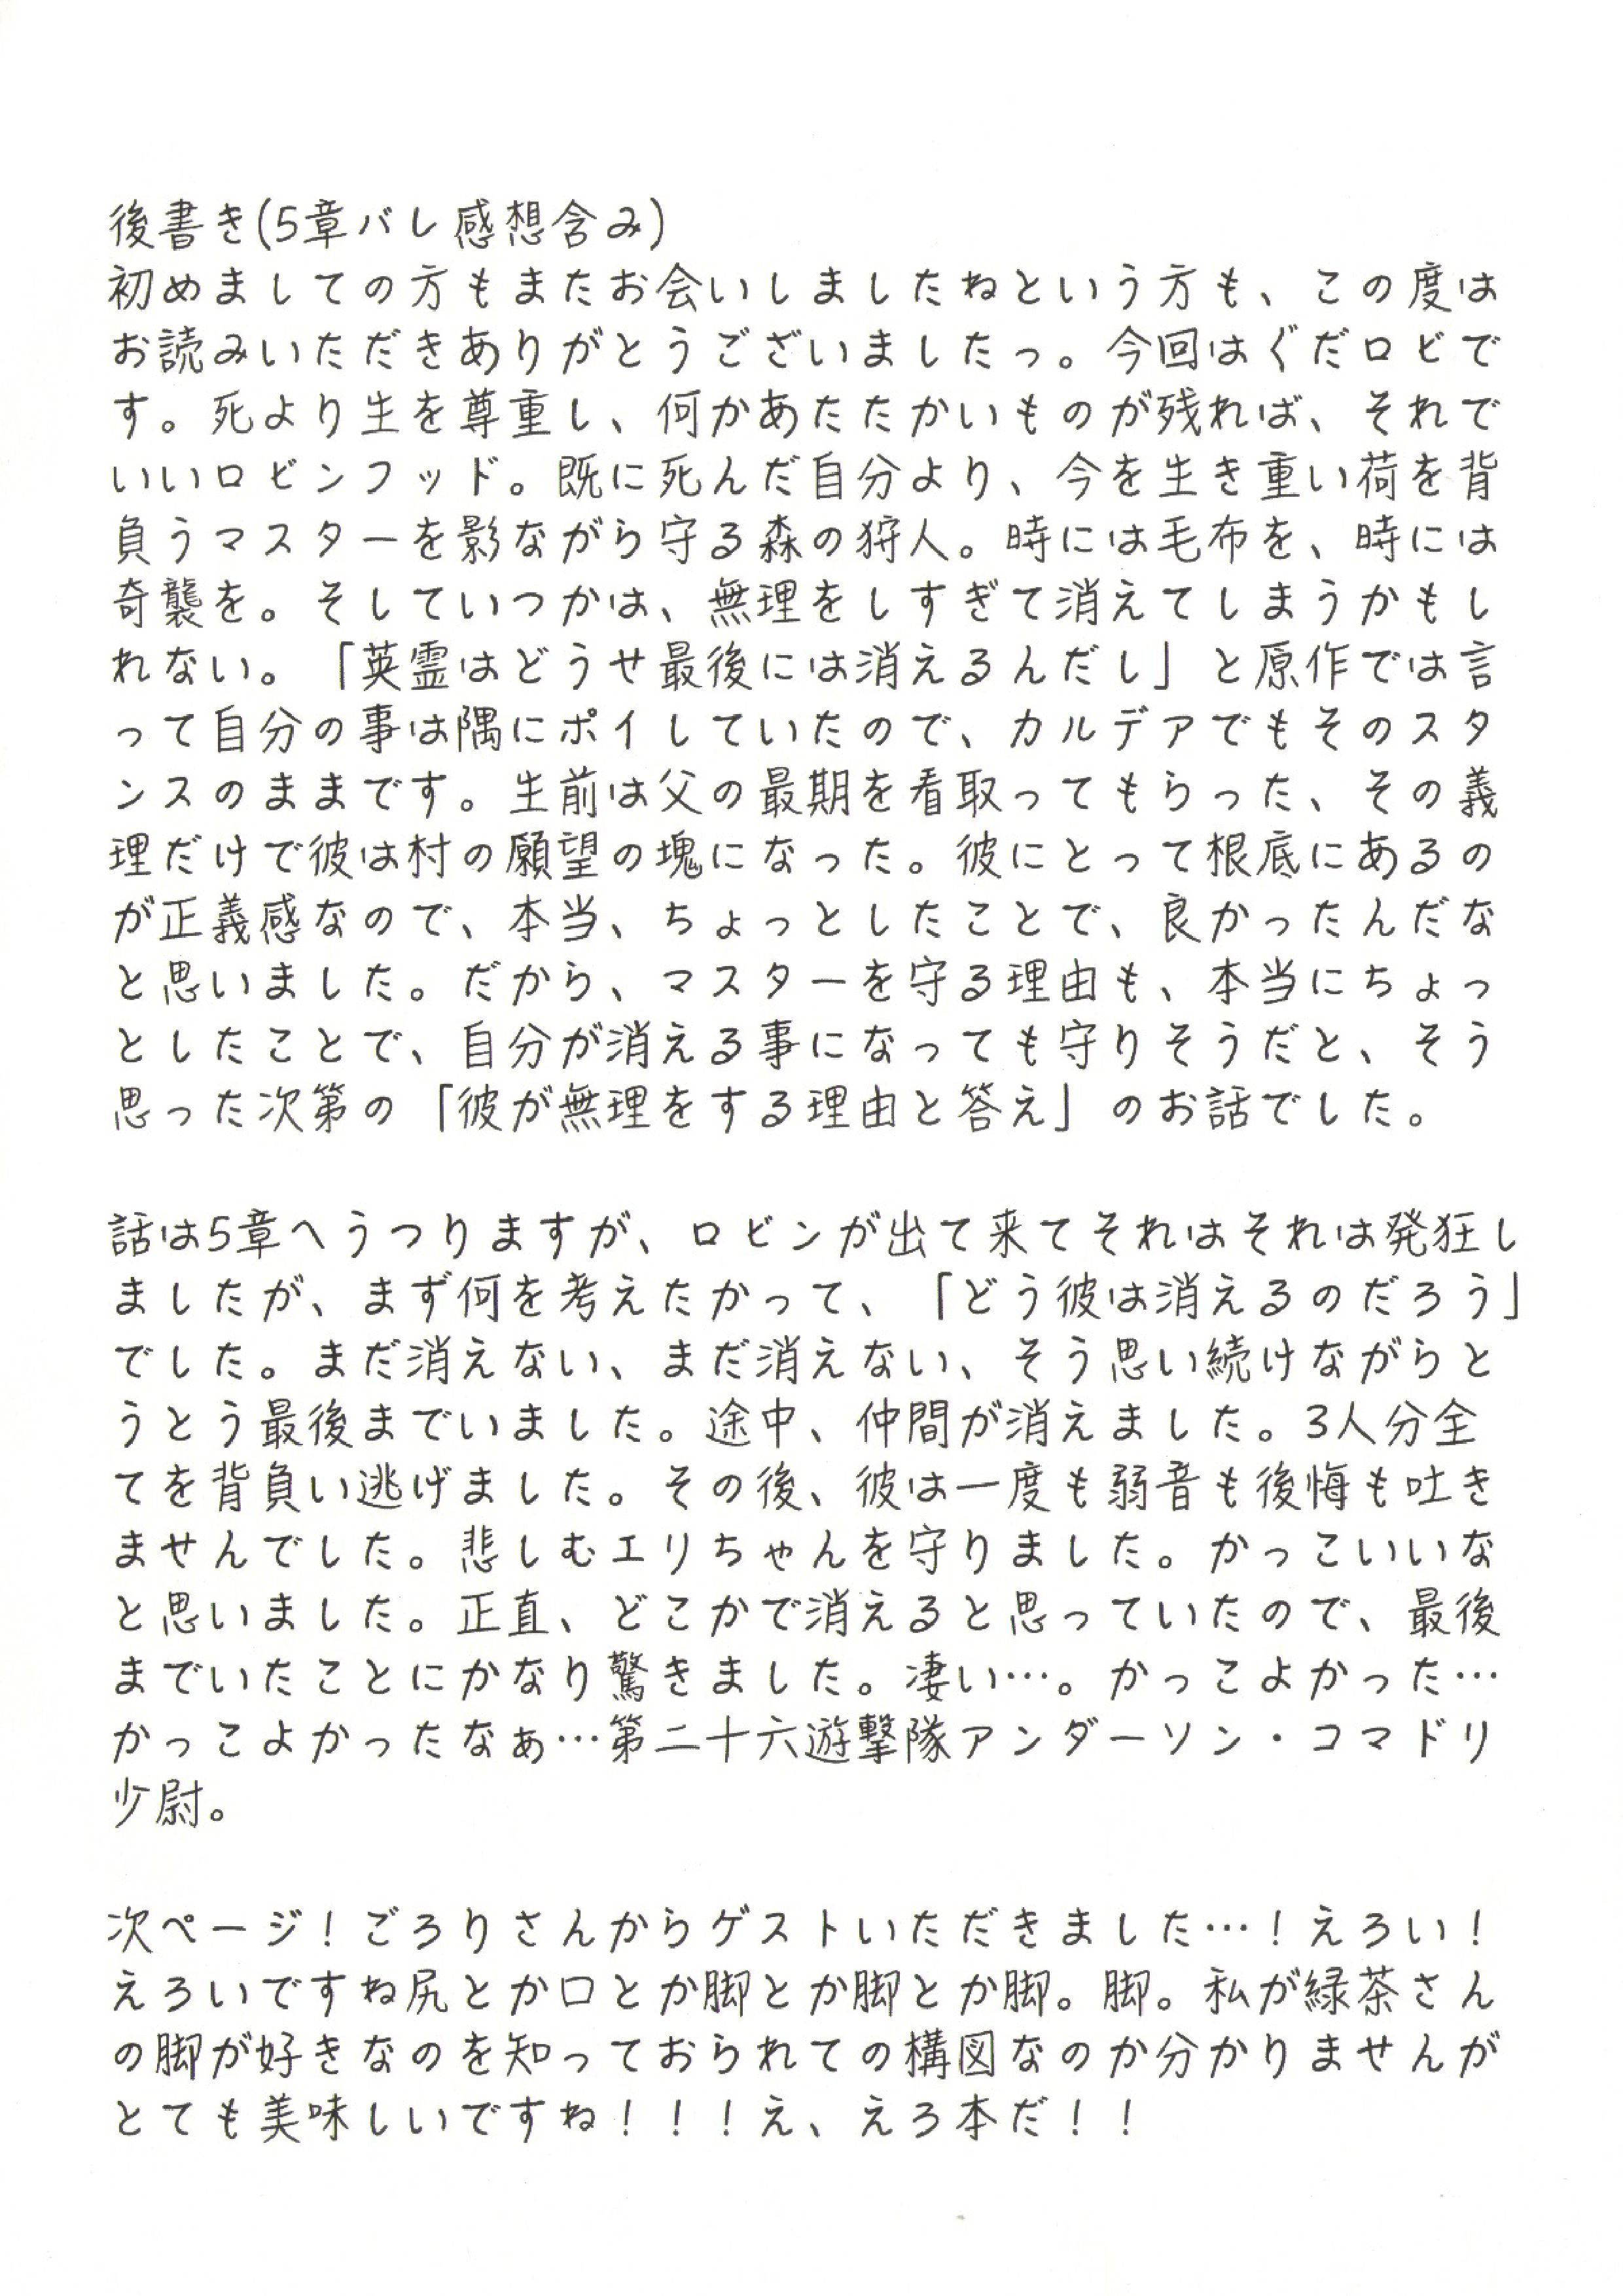 後書き(5章バレ感想含み)
初めましての方もまたお会いしましたねという方も、この度は
お読みいただきありがとうございましたっ。今回はぐだロビで
す。死より生を尊重し、何かあたたかいものが残れば、それで
いいロビンフッド。既に死んだ自分より、今を生き重い荷を背
負うマスターを影ながら守る森の狩人。時には毛布を、時には
奇襲を。そしていつかは、無理をしすぎて消えてしまうかもし
れない。「英霊はどうせ最後には消えるんだし」と原作では言
って自分の事は隅にポイしていたので、カルデアでもそのスタ
ンスのままです。生前は父の最期を看取ってもらった、その義
理だけで彼は村の願望の塊になった。彼にとって根底にあるの
が正義感なので、本当、ちょっとしたことで、良かったんだな
と思いました。だから、マスターを守る理由も、本当にちょっ
としたことで、自分が消える事になっても守りそうだと、そう
思った次第の「彼が無理をする理由と答え」のお話でした。
話は5章へうつりますが、ロビンが出て来てそれはそれは発狂し
ましたが、まず何を考えたかって、「どう彼は消えるのだろう」
でした。まだ消えない、まだ消えない、そう思い続けながらと
うとう最後までいました。途中、仲間が消えました。3人分全
てを背負い逃げました。その後、彼は一度も弱音も後悔も吐き
ませんでした。悲しむエリちゃんを守りました。かっこいいな
と思いました。正直、どこかで消えると思っていたので、最後
までいたことにかなり驚きました。凄い…。かっこよかった…
かっこよかったなぁ…第二十六遊撃隊アンダーソン・コマドリ
少尉。
次ページ!ごろりさんからゲストいただきました…!えろい!
えろいですね尻とか口とか脚とか脚とか脚。脚。私が緑茶さん
の脚が好きなのを知っておられての構図なのか分かりませんが
とても美味しいですね!!!え、えろ本だ!!